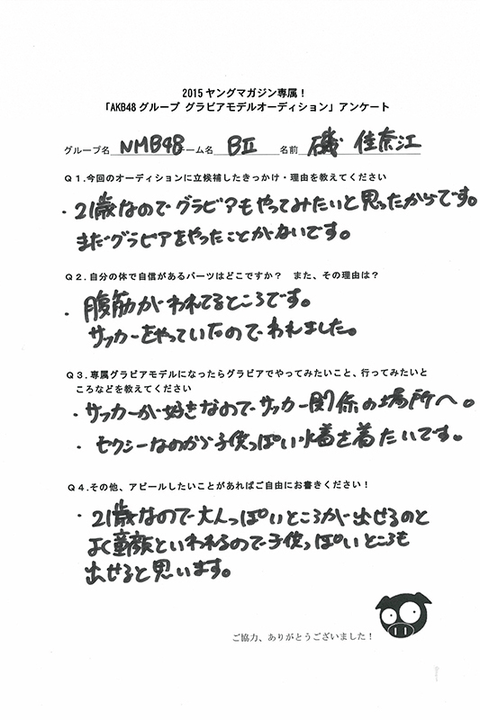 2015ヤングマガジン専属！
「AKB48グループ グラビアモデルオーディション」アンケート
グループ名 NMB48 チーム名 BⅡ 名前 磯 佳奈江
Ｑ１.今回のオーディションに立候補したきっかけ・理由を教えてください
・21歳なのでグラビアもやってみたいと思ったからです。
まだグラビアをやったことがないです。
Ｑ２.自分の体で自信があるパーツはどこですか？ また、その理由は？
・腹筋がわれてるところです。
サッカーをやっていたのでわれました。
Ｑ３.専属グラビアモデルになったらグラビアでやってみたいこと、行ってみたいと
ころなどを教えてください
・サッカーが好きなのでサッカー関係の場所へ。
・セクシーなのから子供っぽい水着を着たいです。
Ｑ４.その他、アピールしたいことがあればご自由にお書きください！
・21歳なので大人っぽいところが出せるのと
よく童顔といわれるので子供っぽいところも
出せると思います。
ご協力、ありがとうございました！